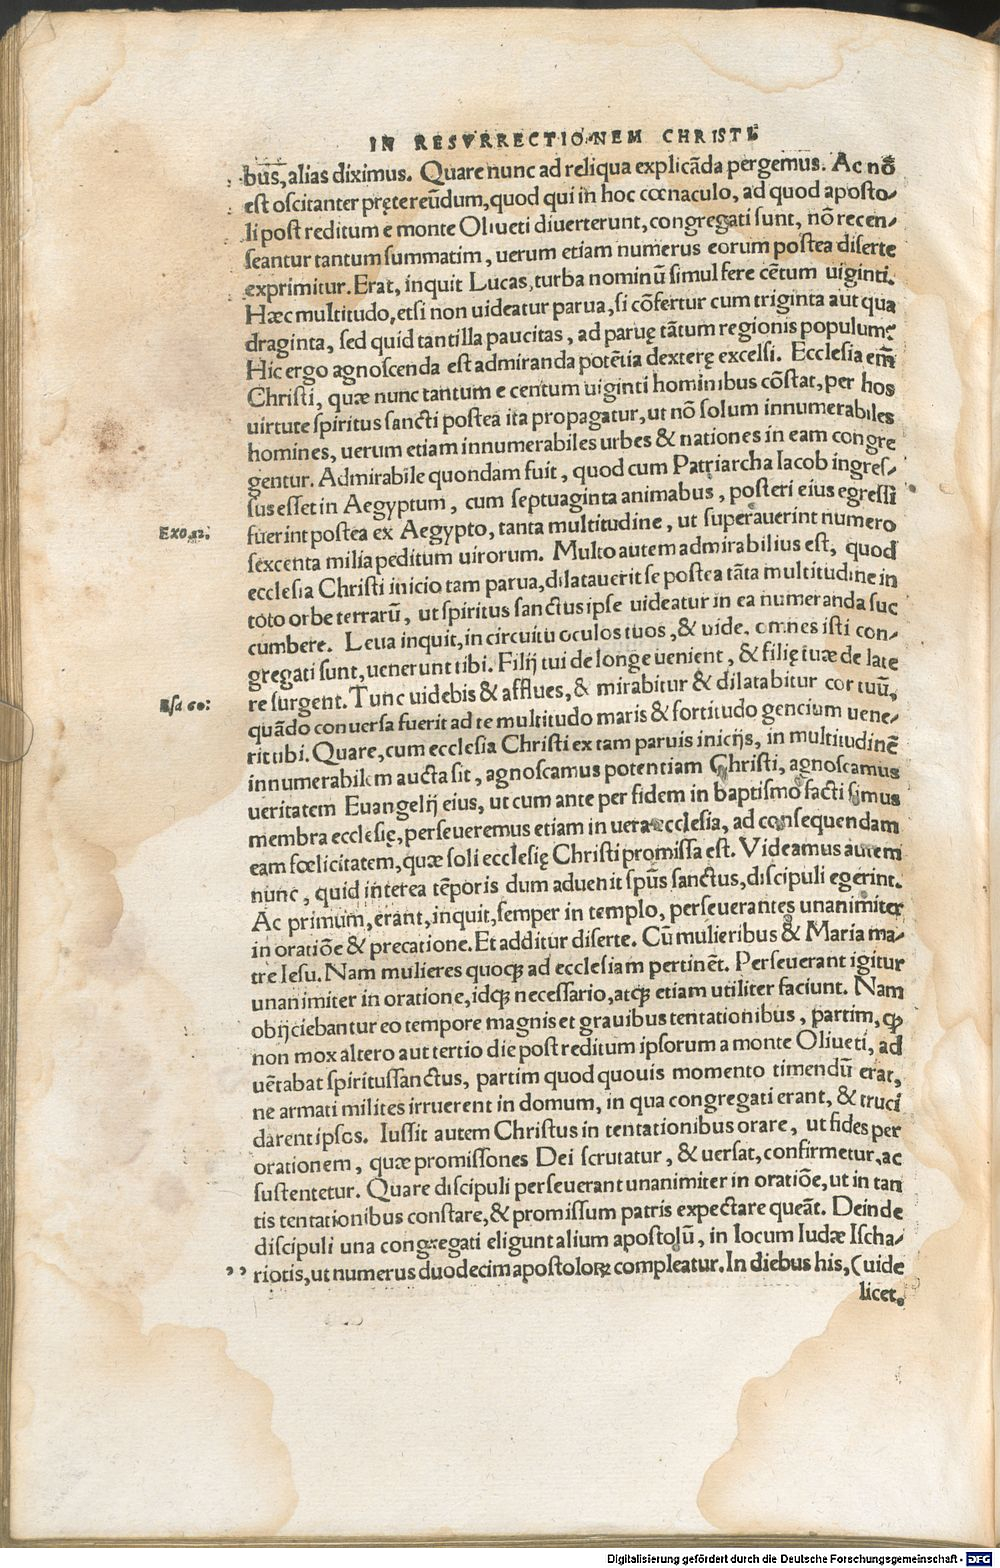 IN RESVRRECTIONEM CHRISTI
bus, alias diximus. Quare nunc ad reliqua explicãda pergemus. Ac nõ
est oscitanter prętereũdum, quod qui in hoc cœnaculo, ad quod aposto-
li post reditum e monte Oliueti diuerterunt, congregati sunt, nõ recen-
seantur tantum summatim, uerum etiam numerus eorum postea diserte
exprimitur. Erat, inquit Lucas, turba nominũ simul fere cẽtum uiginti.
Hæc multitudo, etsi non uideatur parua, si cõfertur cum triginta aut qua
draginta, sed quid tantilla paucitas, ad paruę tãtum regionis populum?
Hic ergo agnoscenda est admiranda potẽtia dexterę excelsi. Ecclesia em̃
Christi, quæ nunc tantum e centum uiginti hominibus cõstat, per hos
uirtute spiritus sancti postea ita propagatur, ut nõ solum innumerabiles
homines, uerum etiam innumerabiles urbes & nationes in eam congre
gentur. Admirabile quondam fuit, quod cum Patriarcha Iacob ingres-
sus esset in Aegyptum, cum septuaginta animabus, posteri eius egressi
Exo. 12. fuerint postea ex Aegypto, tanta multitudine, ut superauerint numero
sexcenta milia peditum uirorum. Multo autem admirabilius est, quod
ecclesia Christi inicio tam parua, dilatauerit se postea tãta multitudine in
toto orbe terrarũ, ut spiritus sanctus ipse uideatur in ea numeranda suc
cumbere. Leua inquit, in circuitu oculos tuos, & uide, omnes isti con-
gregati sunt, uenerunt tibi. Filij tui de longe uenient, & filię tuæ de late
Esa 60: re surgent. Tunc uidebis & afflues, & mirabitur & dilatabitur cor tuũ,
quãdo conuersa fuerit ad te multitudo maris & fortitudo gencium uene-
rit tibi. Quare, cum ecclesia Christi ex tam paruis inicijs, in multitudinẽ
innumerabilem aucta sit, agnoscamus potentiam Christi, agnoscamus
ueritatem Euangelij eius, ut cum ante per fidem in baptismo facti simus
membra ecclesię, perseueremus etiam in uera ecclesia, ad consequendam
eam fœlicitatem, quæ soli ecclesię Christi promissa est. Videamus autem
nunc, quid interea tẽporis dum aduenit spũs sanctus, discipuli egerint.
Ac primum, erant, inquit, semper in templo, perseuerantes unanimiter
in oratiõe & precatione. Et additur diserte. Cũ mulieribus & Maria ma-
tre Iesu. Nam mulieres quoqȝ ad ecclesiam pertinẽt. Perseuerant igitur
unanimiter in oratione, idqȝ necessario, atqȝ etiam utiliter faciunt. Nam
obijciebantur eo tempore magnis et grauibus tentationibus, partim, ꝙ
non mox altero aut tertio die post reditum ipsorum a monte Oliueti, ad
uẽtabat spiritussanctus, partim quod quouis momento timendũ erat,
ne armati milites irruerent in domum, in qua congregati erant, & truci
darent ipsos. Iussit autem Christus in tentationibus orare, ut fides per
orationem, quæ promissones Dei scrutatur, & uersat, confirmetur, ac
sustentetur. Quare discipuli perseuerant unanimiter in oratiõe, ut in tan
tis tentationibus constare, & promissum patris expectare queãt. Deinde
discipuli una congregati eligunt alium apostolũ, in locum Iudæ Ischa-
,, riotis, ut numerus duodecim apostoloꝝ compleatur. In diebus his, (uide
licet,
Digitalisierung gefördert durch die Deutsche Forschungsgemeinschaft - DFG